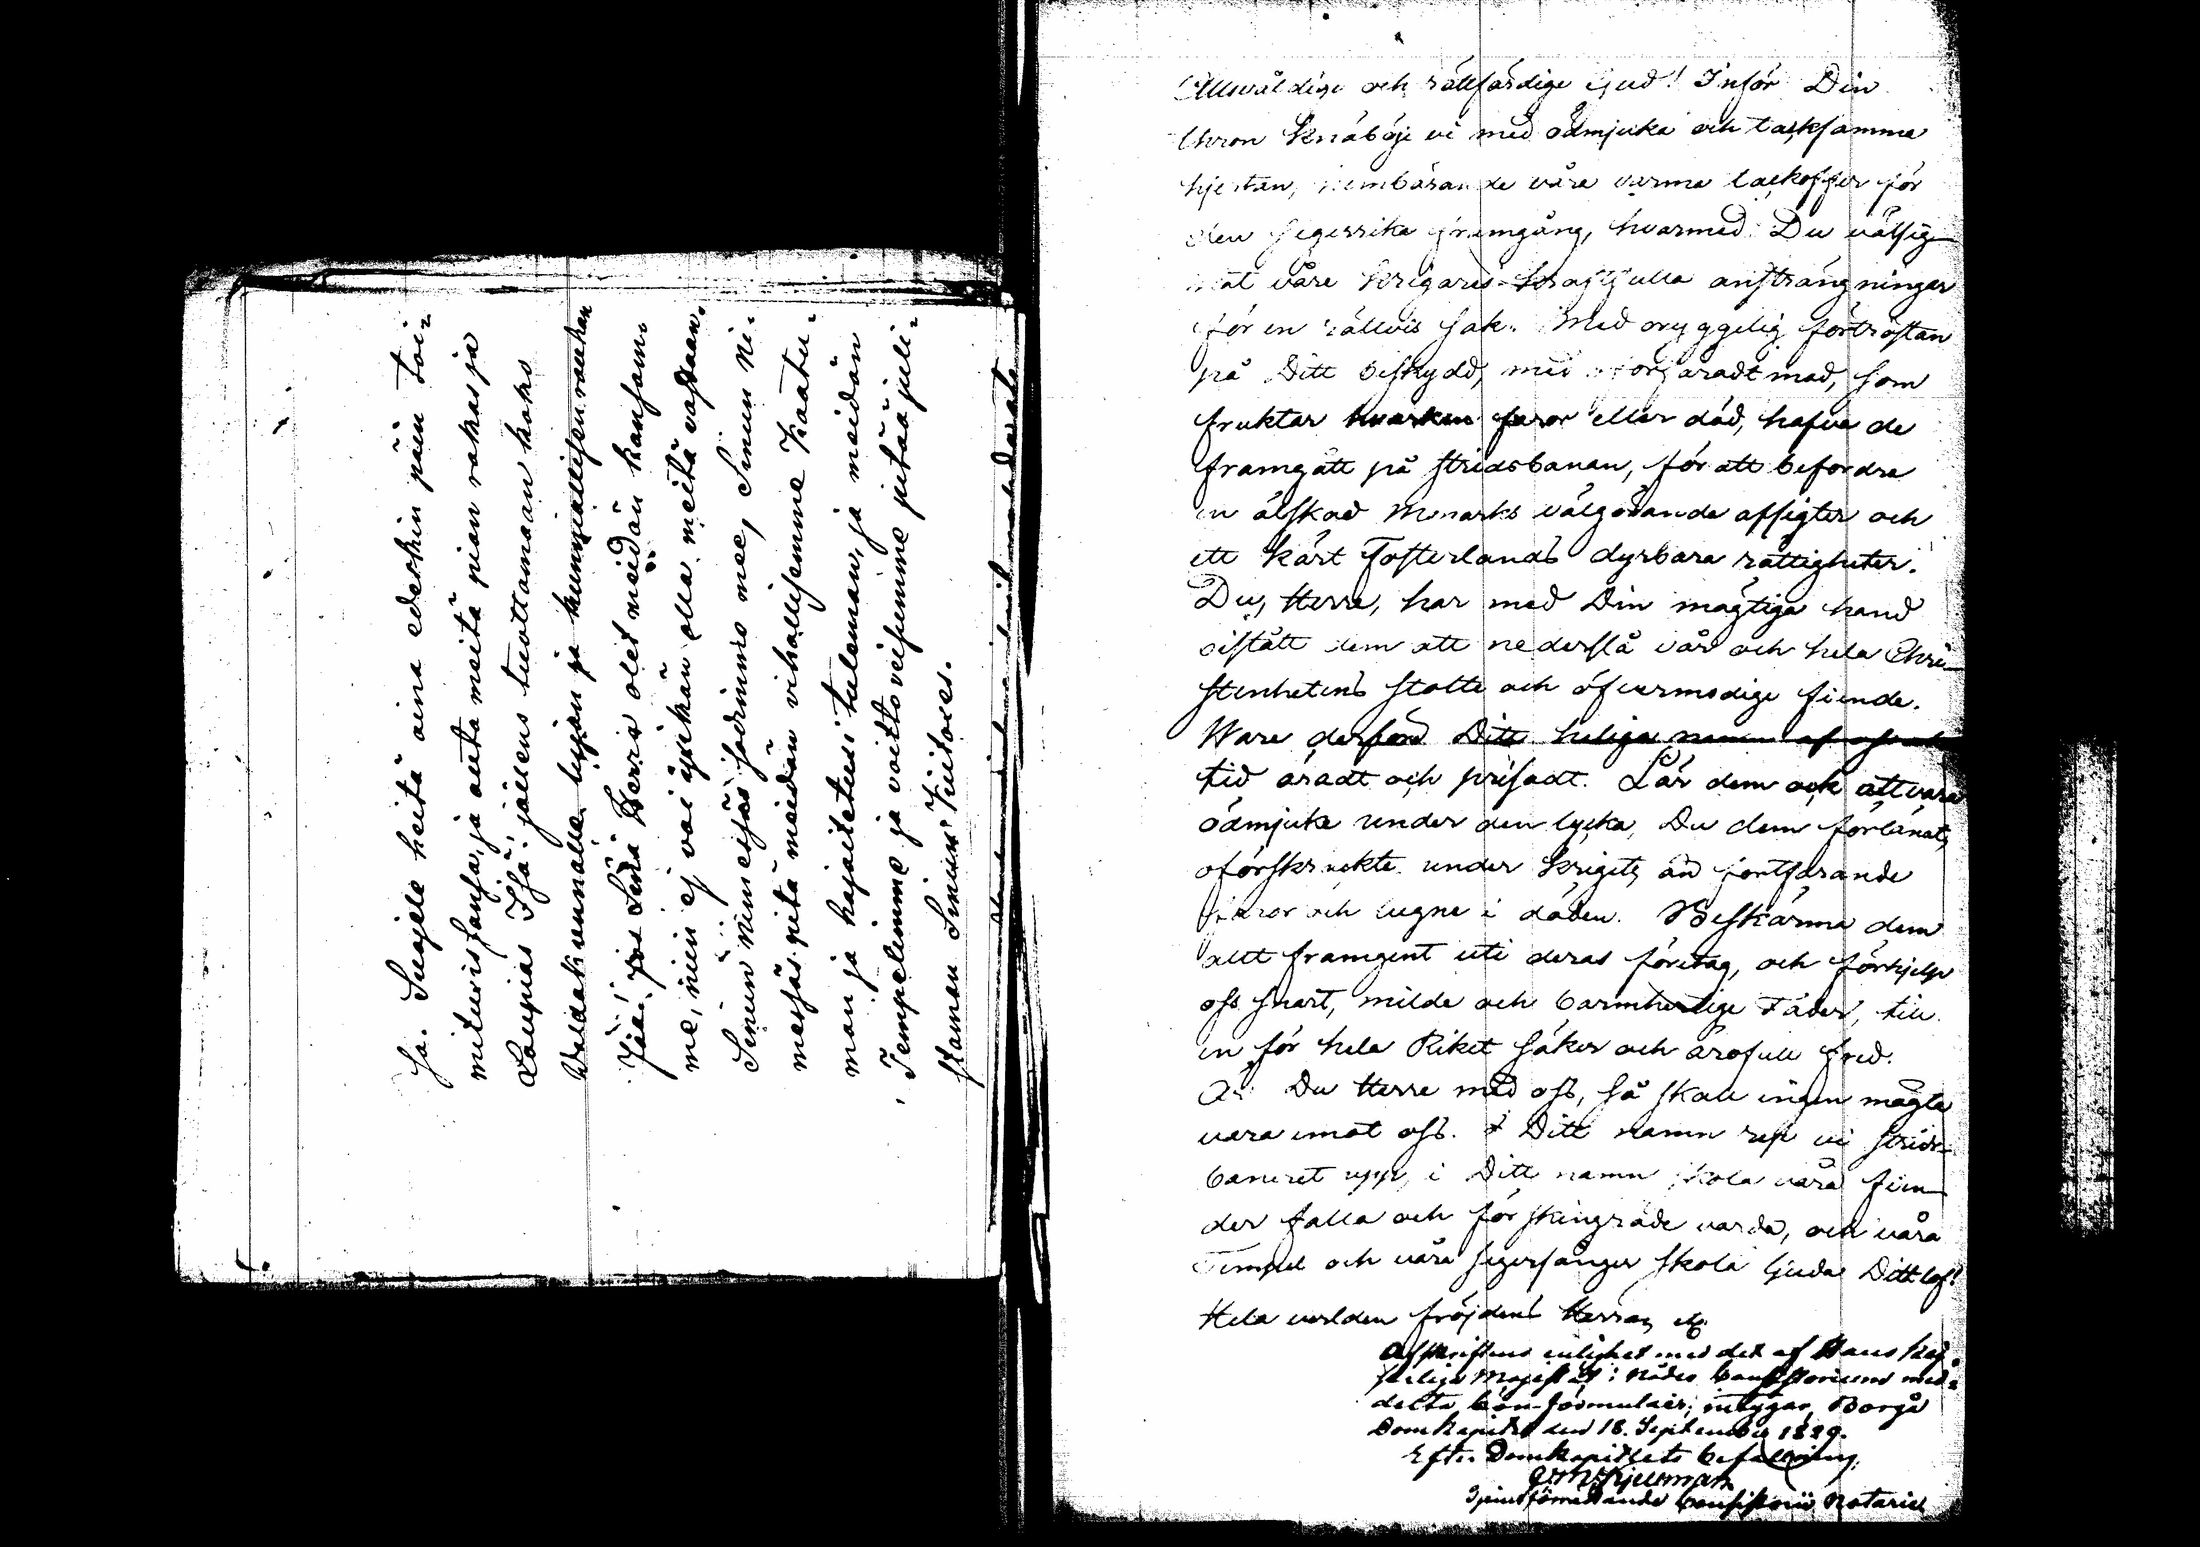 sa. Suojele heitä aina edeskin päin toi-
mituisissansa, ja auta meitä pian rakas ja
Laupias Isä! jällens tuottamaan koko
Waldakunnalle lujan ja kunniallisen rauhan
Jää! jos Sinä Herra olet meidän kansam-
me, niin ej voi yxikän olla meitä vastaan.
Sinun nimesjäs sodimme mee, Sinun ni-
mesjäs pitä meidän vihollisemme kaatu-
man ja hajaitetuxi tuleman, ja meidän
Tempelimme ja voitto veisumme pitää juli-
staman Sinun Kiitoxes.
Allsvåldige och rättfärdige Gud! Inför Din
thron knäböje vi med ödmjuka och tacksamma
hjertan, frambärande våre varma tackoffer för
den segerrika framgång, hvarmed Du välsig-
nat våre krigares kraftfulla ansträngningar
för en rättvis sak. Med orygglig förtröstan
på Ditt beskydd, med oförfäradt mod, som
fruktar hvarken faror eller död, hafva de
framgått på stridsbanan, för att befordra
en älskad Monarks välgörande afsigter och
ett kärt Fosterlands dyrbara rättigheter.
Du, Herre, har med Din mägtiga hand
bistått dem att nederslå vår och hela Chri-
stenhetens stolte och öfvermodige fiende.
Ware derföre Ditt heliga namn af oss al
tid äradt och prisadt. Lär dem ock att vara
ödmjuka under den lycka, Du dem förlänat,
oförskräckte under krigets än fortfarande
faror och lugne i döden. Beskärma dem
allt framgent uti deras företag, och förhjelp
oss snart, milde och barmhertige Fader, till
en för hela Riket säker och ärofull fred.
Är Du Herre med oss, så skall ingen mägta
vara emot oss. I Ditt namn res vi strids-
baneret upp, i Ditt namn skola våra fien-
der falla och förskingrade varda, och våra
Tempel och våra segersånger skola ljuda Ditt lof!
Hela verlden fröjdens Herran, etc.
Afskriftens enlighet med det af Hans Kej-
serliga Majestät i Nåder Consistorium med-
delta bön-formulair, intygar, Borgå
Domkapitel den 18. September 1829.
Efter Domkapitlets befallning,
Consistorii Notarie